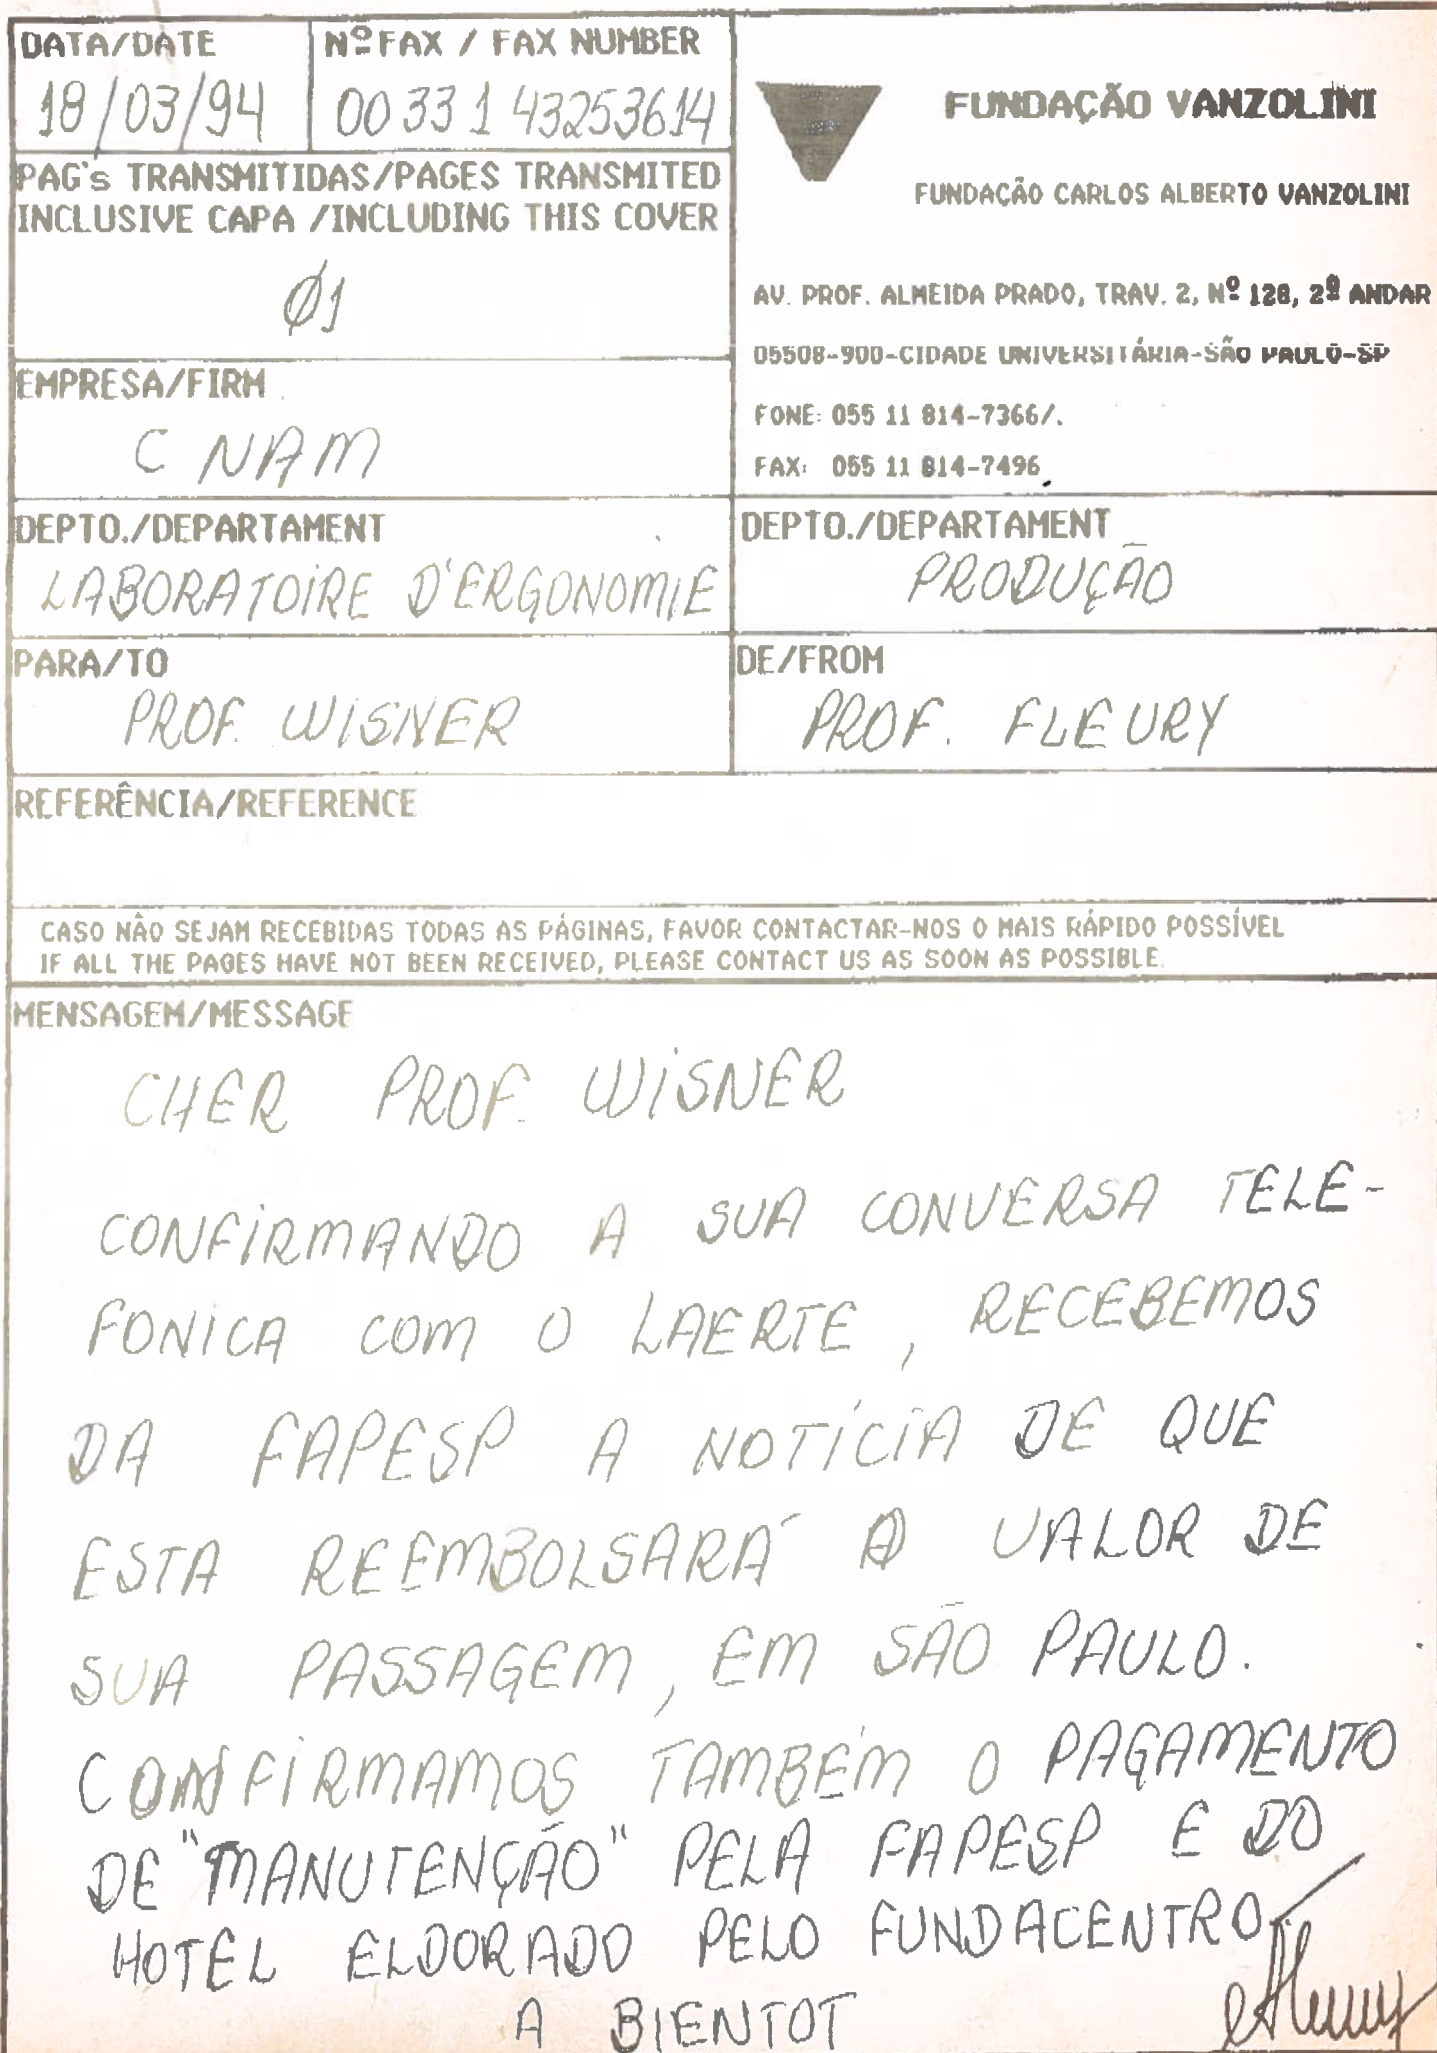 DATA/DATE
18/03/94
Nº FAX / FAX NUMBER
00 33 1 43253614
PAG's TRANSMITIDAS/PAGES TRANSMITED
INCLUSIVE CAPA /INCLUDING THIS COVER
Ø1
FUNDAÇÃO VANZOLINI
FUNDAÇÃO CARLOS ALBERTO VANZOLINI
AV. PROF. ALMEIDA PRADO, TRAV. 2, Nº 128, 2º ANDAR
05508-900-CIDADE UNIVERSITÁRIA-SÃO PAULO-SP
FONE: 055 11 814-7366/.
FAX: 055 11 814-7496
EMPRESA/FIRM
C NAM
DEPTO./DEPARTAMENT
LABORATOIRE D'ERGONOMIE
DEPTO./DEPARTAMENT
PRODUÇÃO
PARA/TO
PROF. WISNER
DE/FROM
PROF. FLEURY
REFERÊNCIA/REFERENCE
CASO NÃO SEJAM RECEBIDAS TODAS AS PÁGINAS, FAVOR CONTACTAR-NOS O MAIS RÁPIDO POSSÍVEL
IF ALL THE PAGES HAVE NOT BEEN RECEIVED, PLEASE CONTACT US AS SOON AS POSSIBLE.
MENSAGEM/MESSAGE
CHER PROF. WISNER
CONFIRMANDO A SUA CONVERSA TELE-
FONICA COM O LAERTE, RECEBEMOS
DA FAPESP A NOTÍCIA DE QUE
ESTA REEMBOLSARÁ O VALOR DE
SUA PASSAGEM, EM SÃO PAULO.
CONFIRMAMOS TAMBÉM O PAGAMENTO
DE "MANUTENÇÃO" PELA FAPESP E DO
HOTEL ELDORADO PELO FUNDACENTRO
A BIENTOT